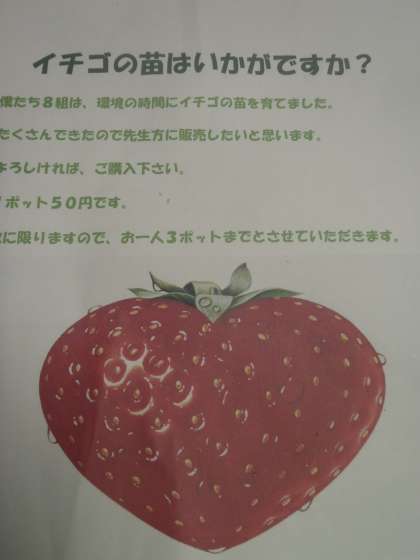 イチゴの苗はいかがですか？
僕たち８組は、環境の時間にイチゴの苗を育てました。
たくさんできたので先生方に販売したいと思います。
よろしければ、ご購入下さい。
ポット５０円です。
に限りますので、お一人３ポットまでとさせていただきます。